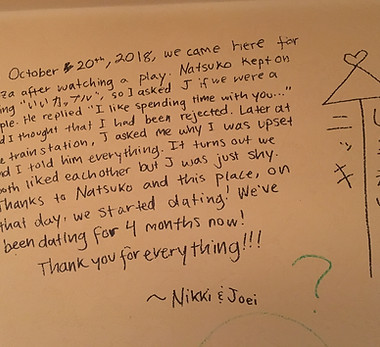 October 20th, 2018, we came here for
za after watching a play. Natsuko kept on
ing "いいカップル", so I asked J if we were a
ple. He replied "I like spending time with you..."
d I thought that I had been rejected. Later at
e train station, J asked me why I was upset
nd I told him everything. It turns out we
oth liked eachother but J was just shy.
Thanks to Natsuko and this place, on
that day, we started dating! We've
been dating for 4 months now!
Thank you for everything!!!
~ Nikki & Joei
?
ニッキ